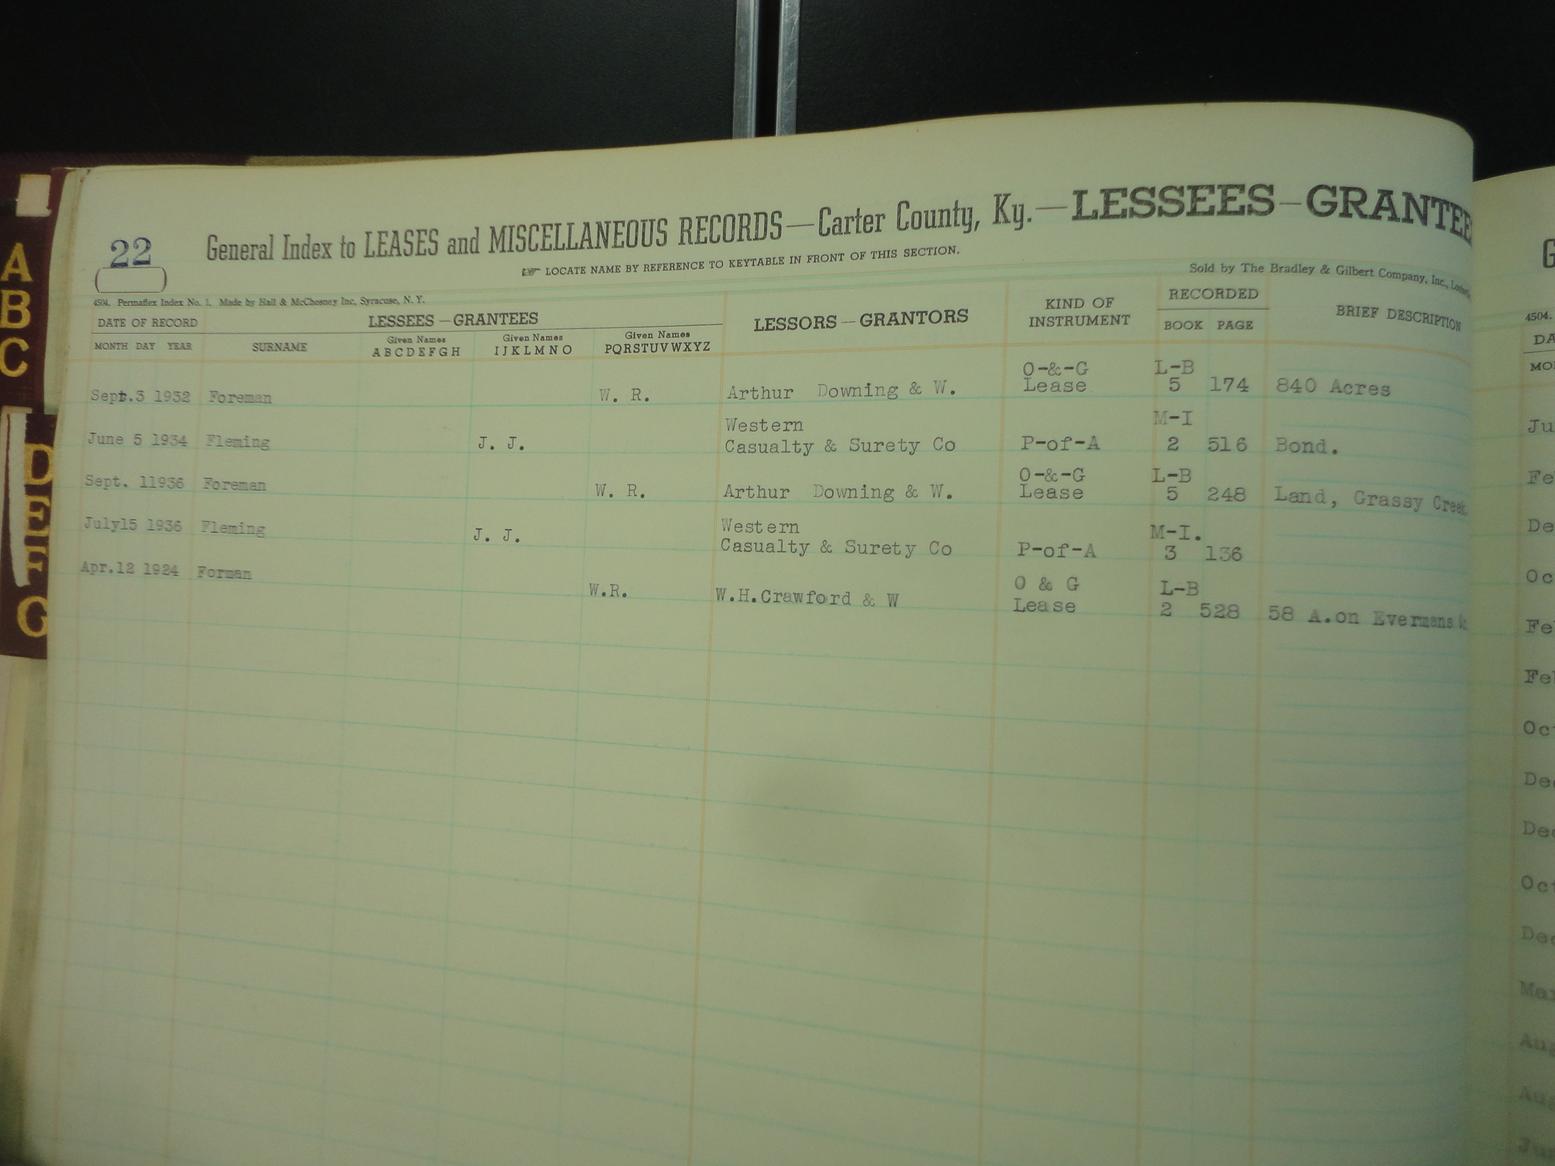 A
B
C
D
E
F
G
22
General Index to LEASES and MISCELLANEOUS RECORDS—Carter County, Ky.—LESSEES–GRANTEE
LOCATE NAME BY REFERENCE TO KEYTABLE IN FRONT OF THIS SECTION.
4504. Permaflex Index No. 1. Made by Hall & McChesney Inc, Syracuse, N. Y.
Sold by The Bradley & Gilbert Company, Inc.,
DATE OF RECORD LESSEES—GRANTEES LESSORS—GRANTORS KIND OF INSTRUMENT RECORDED BRIEF DESCRIPTION
MONTH DAY YEAR SURNAME Given Names ABCDEFGH Given Names IJKLMNO Given Names PQRSTUVWXYZ BOOK PAGE
O-&-G L-B
Sept.3 1932 Foreman W. R. Arthur Downing & W. Lease 5 174 840 Acres
Western M-I
June 5 1934 Fleming J. J. Casualty & Surety Co P-of-A 2 516 Bond.
O-&-G L-B
Sept. 11936 Foreman W. R. Arthur Downing & W. Lease 5 248 Land, Grassy Creek
Western M-I.
July15 1936 Fleming J. J. Casualty & Surety Co P-of-A 3 136
O & G L-B
Apr.12 1924 Forman W.R. W.H.Crawford & W Lease 2 528 58 A.on Evermans
G
4504.
DA
MO
Ju
Fe
De
Oc
Fe
Fe
Oc
De
De
Oc
De
Ma
Au
Au
Ju